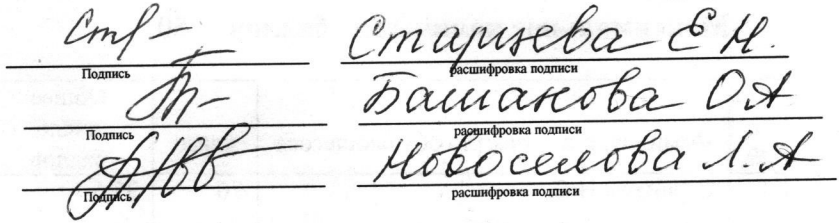 Старцева Е Н.
Подпись расшифровка подписи
Башанова О А
Подпись расшифровка подписи
Новоселова Л.А
Подпись расшифровка подписи